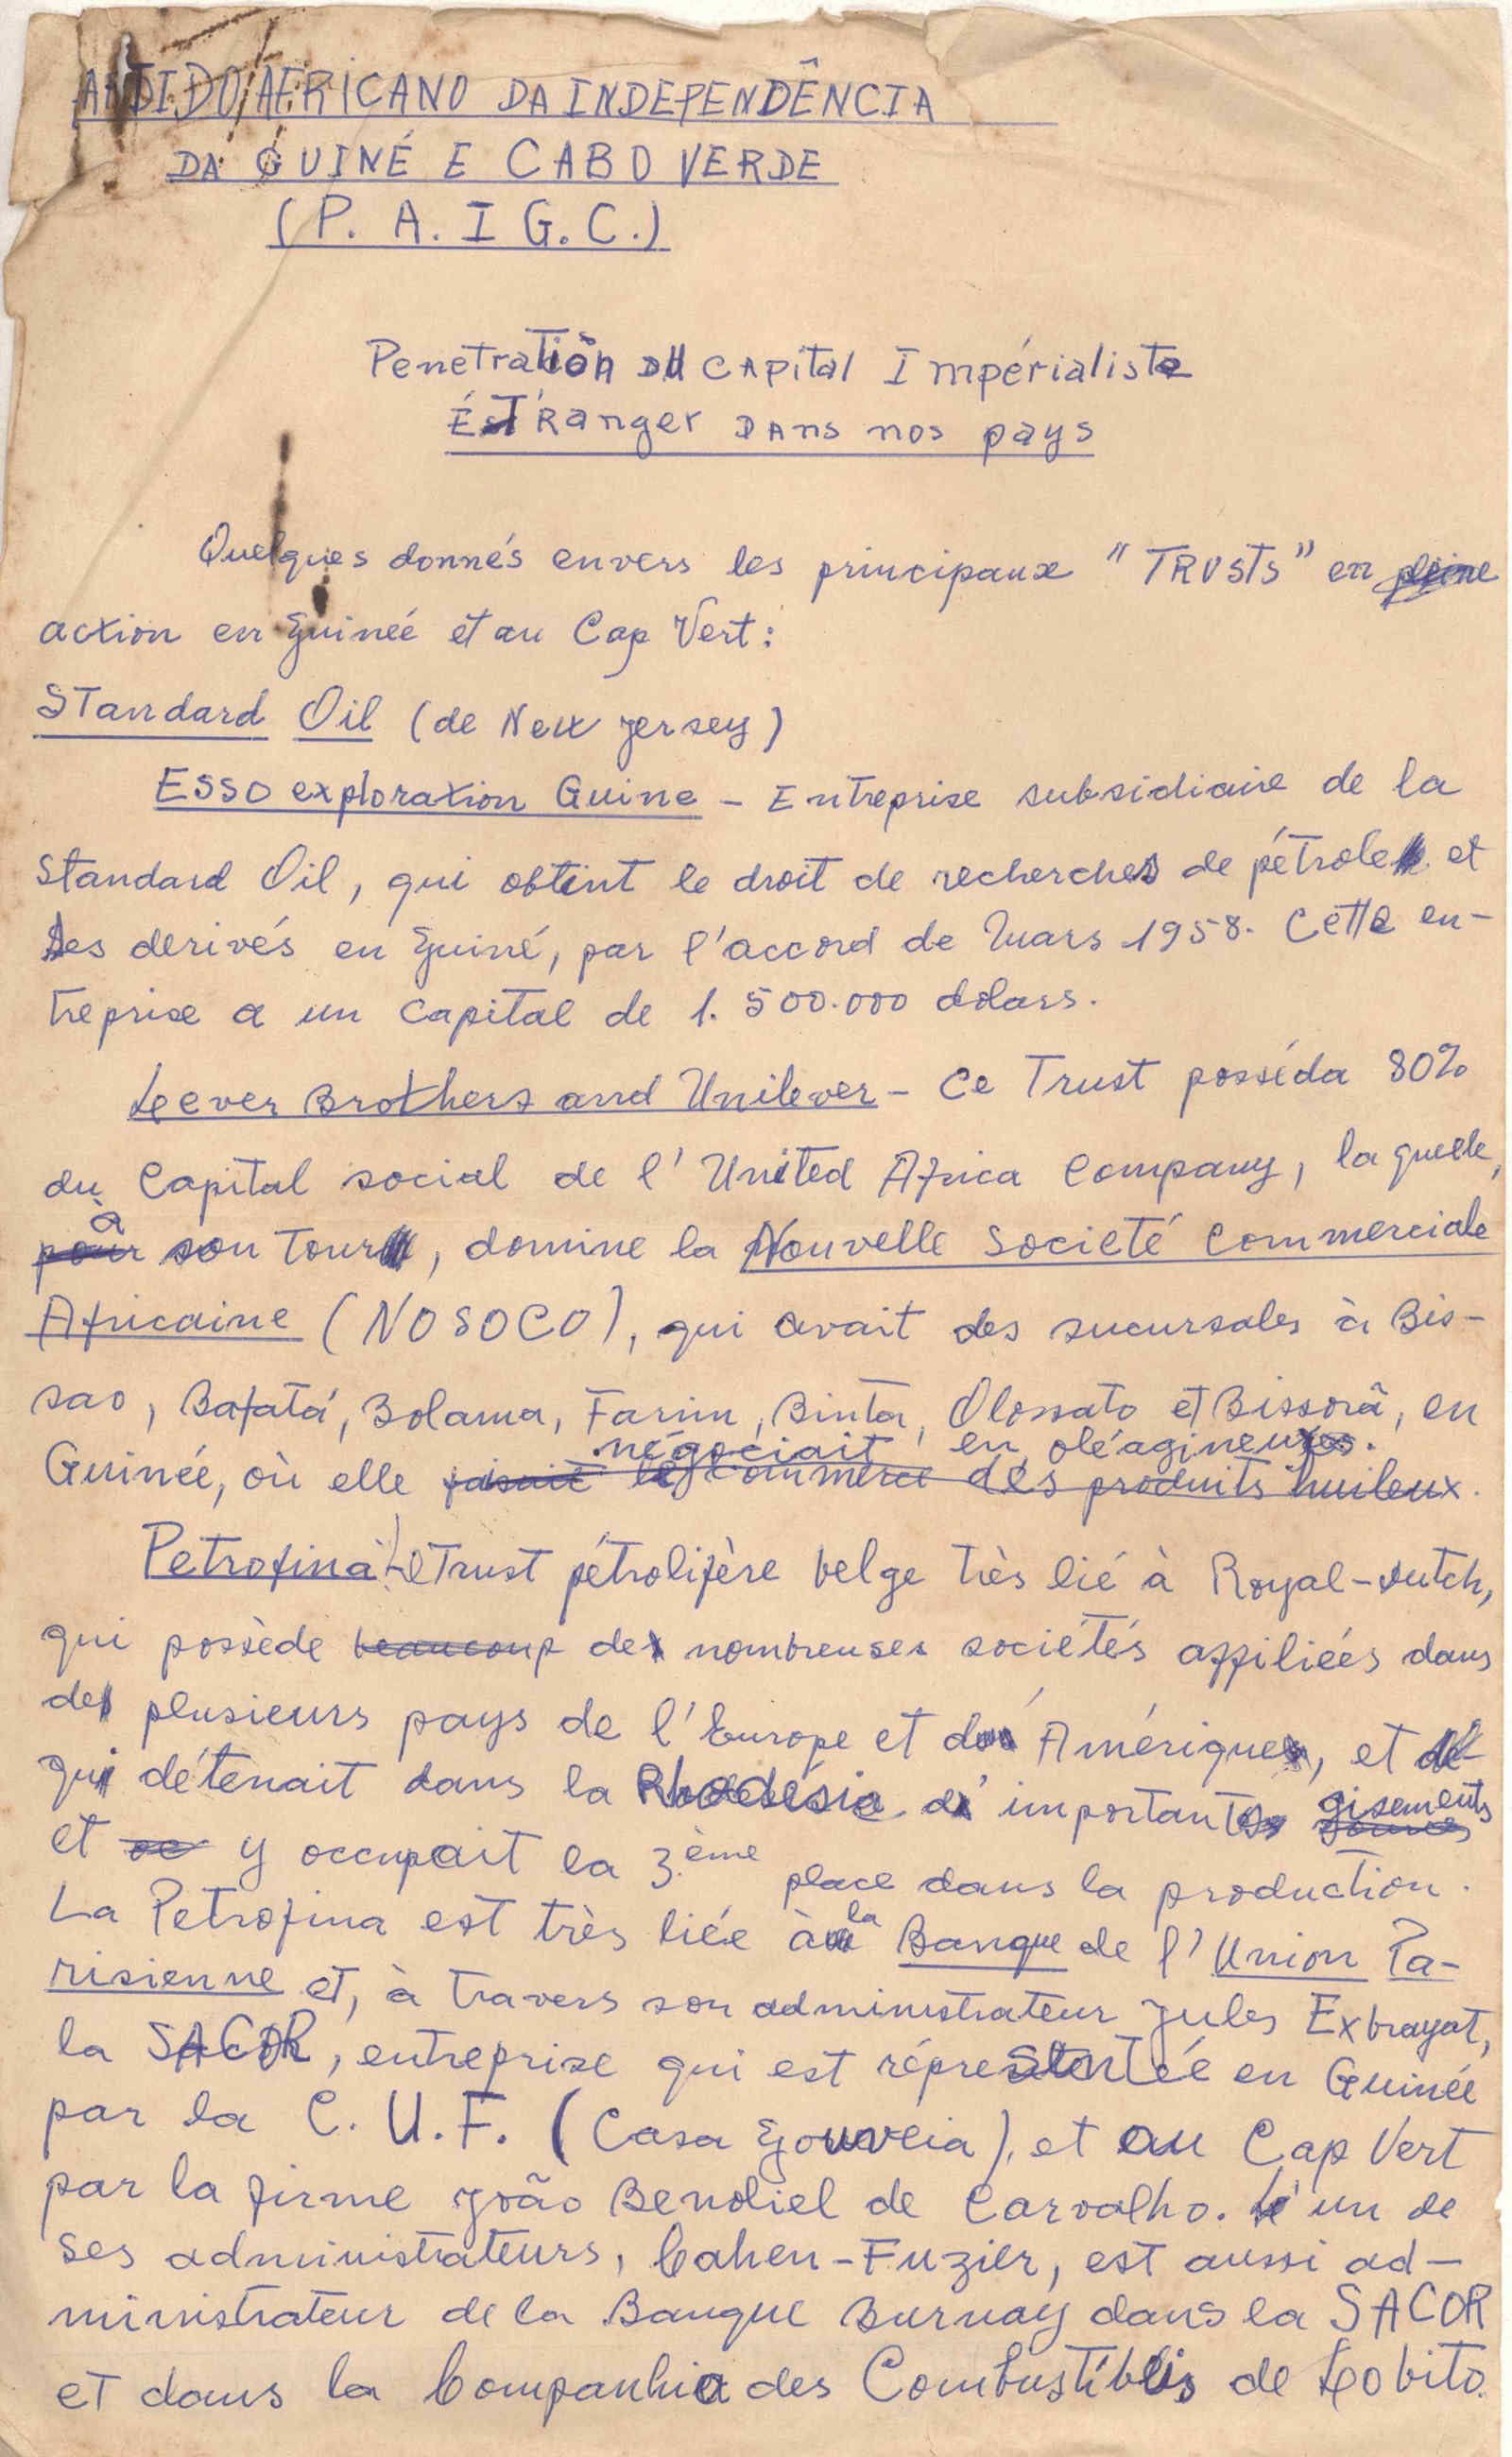 PARTIDO AFRICANO DA INDEPENDÊNCIA
DA GUINÉ E CABO VERDE
(P. A. I G. C.)
Penetration DU CAPital Impérialiste
ÉTRanger DAns nos pays
Quelques donnés envers les principaux "TRUSTS" en pleine
action en Guinée et au Cap Vert:
Standard Oil (de New Jersey)
ESSO exploration Guine - Entreprise subsidiaire de la
Standard Oil, qui obtint le droit de recherches de pétrole et
ses derivés en Guiné, par l'accord de Mars 1958. Cette en-
treprise a un capital de 1.500.000 dolars.
Leever Brothers and Unilever - Ce Trust posséda 80%
du Capital social de l'United Africa Company, la quelle,
pour à son tour, domine la Nouvelle Societé Commerciale
Africaine (NOSOCO), qui avait des sucursales à Bis-
sao, Bafatá, Bolama, Farim, Binta, Olossato et Bissorã, en
négociait en oléagineux.
Guinée, où elle faisait le commerce des produits huileux.
Petrofina - Trust pétrolifère belge très lié à Royal-Dutch,
qui possède beaucoup de nombreuses sociétés affiliées dans
de plusieurs pays de l'Europe et des Amérique, et
qui détenait dans la Rhodésia d'important gisements
et oc y occupait la 3.ème place dans la production.
La Petrofina est très liée à la Banque de l'Union Pa-
risienne et, à travers son administrateur Jules Exbrayat,
la SACOR, entreprise qui est répresentée en Guinée
par la C. U. F. (Casa Gouveia), et au Cap Vert
par la firme João Benoliel de Carvalho. L'un de
ses administrateurs, Cahen-Fuzier, est aussi ad-
ministrateur de la Banque Burnay dans la SACOR
et dans la Companhia des Combustíbles de Lobito.